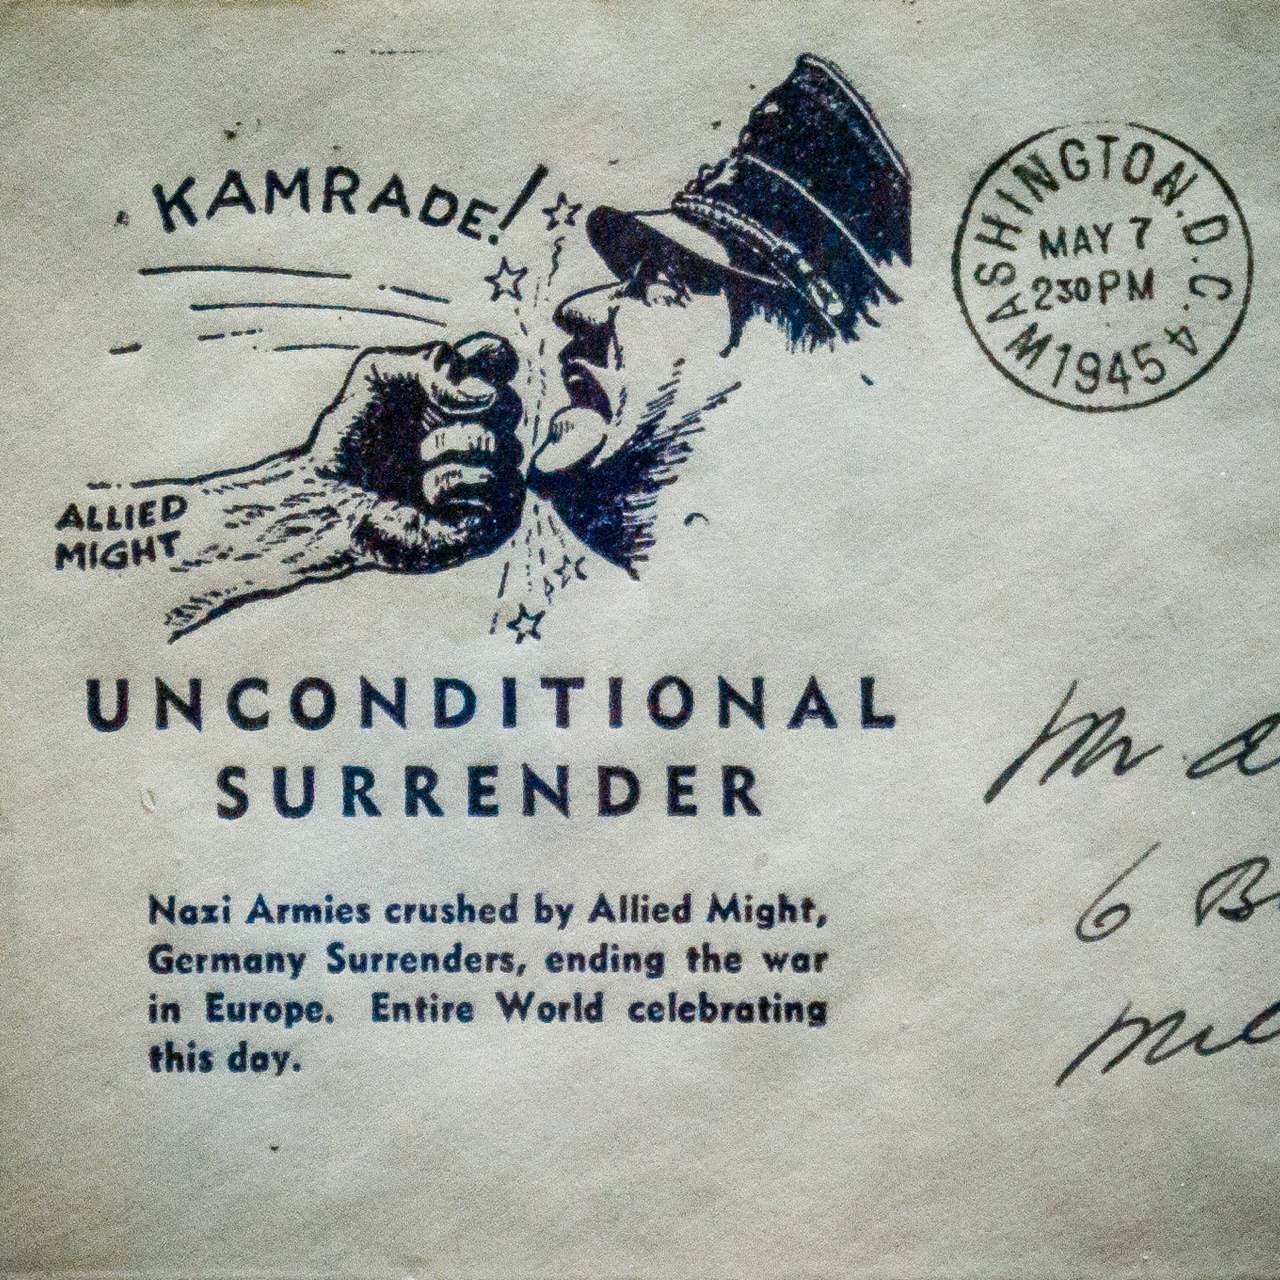 KAMRADE!
WASHINGTON, D.C. 4
MAY 7
230PM
1945
ALLIED
MIGHT
UNCONDITIONAL
SURRENDER
Mr.
6
Nazi Armies crushed by Allied Might,
Germany Surrenders, ending the war
in Europe. Entire World celebrating
this day.